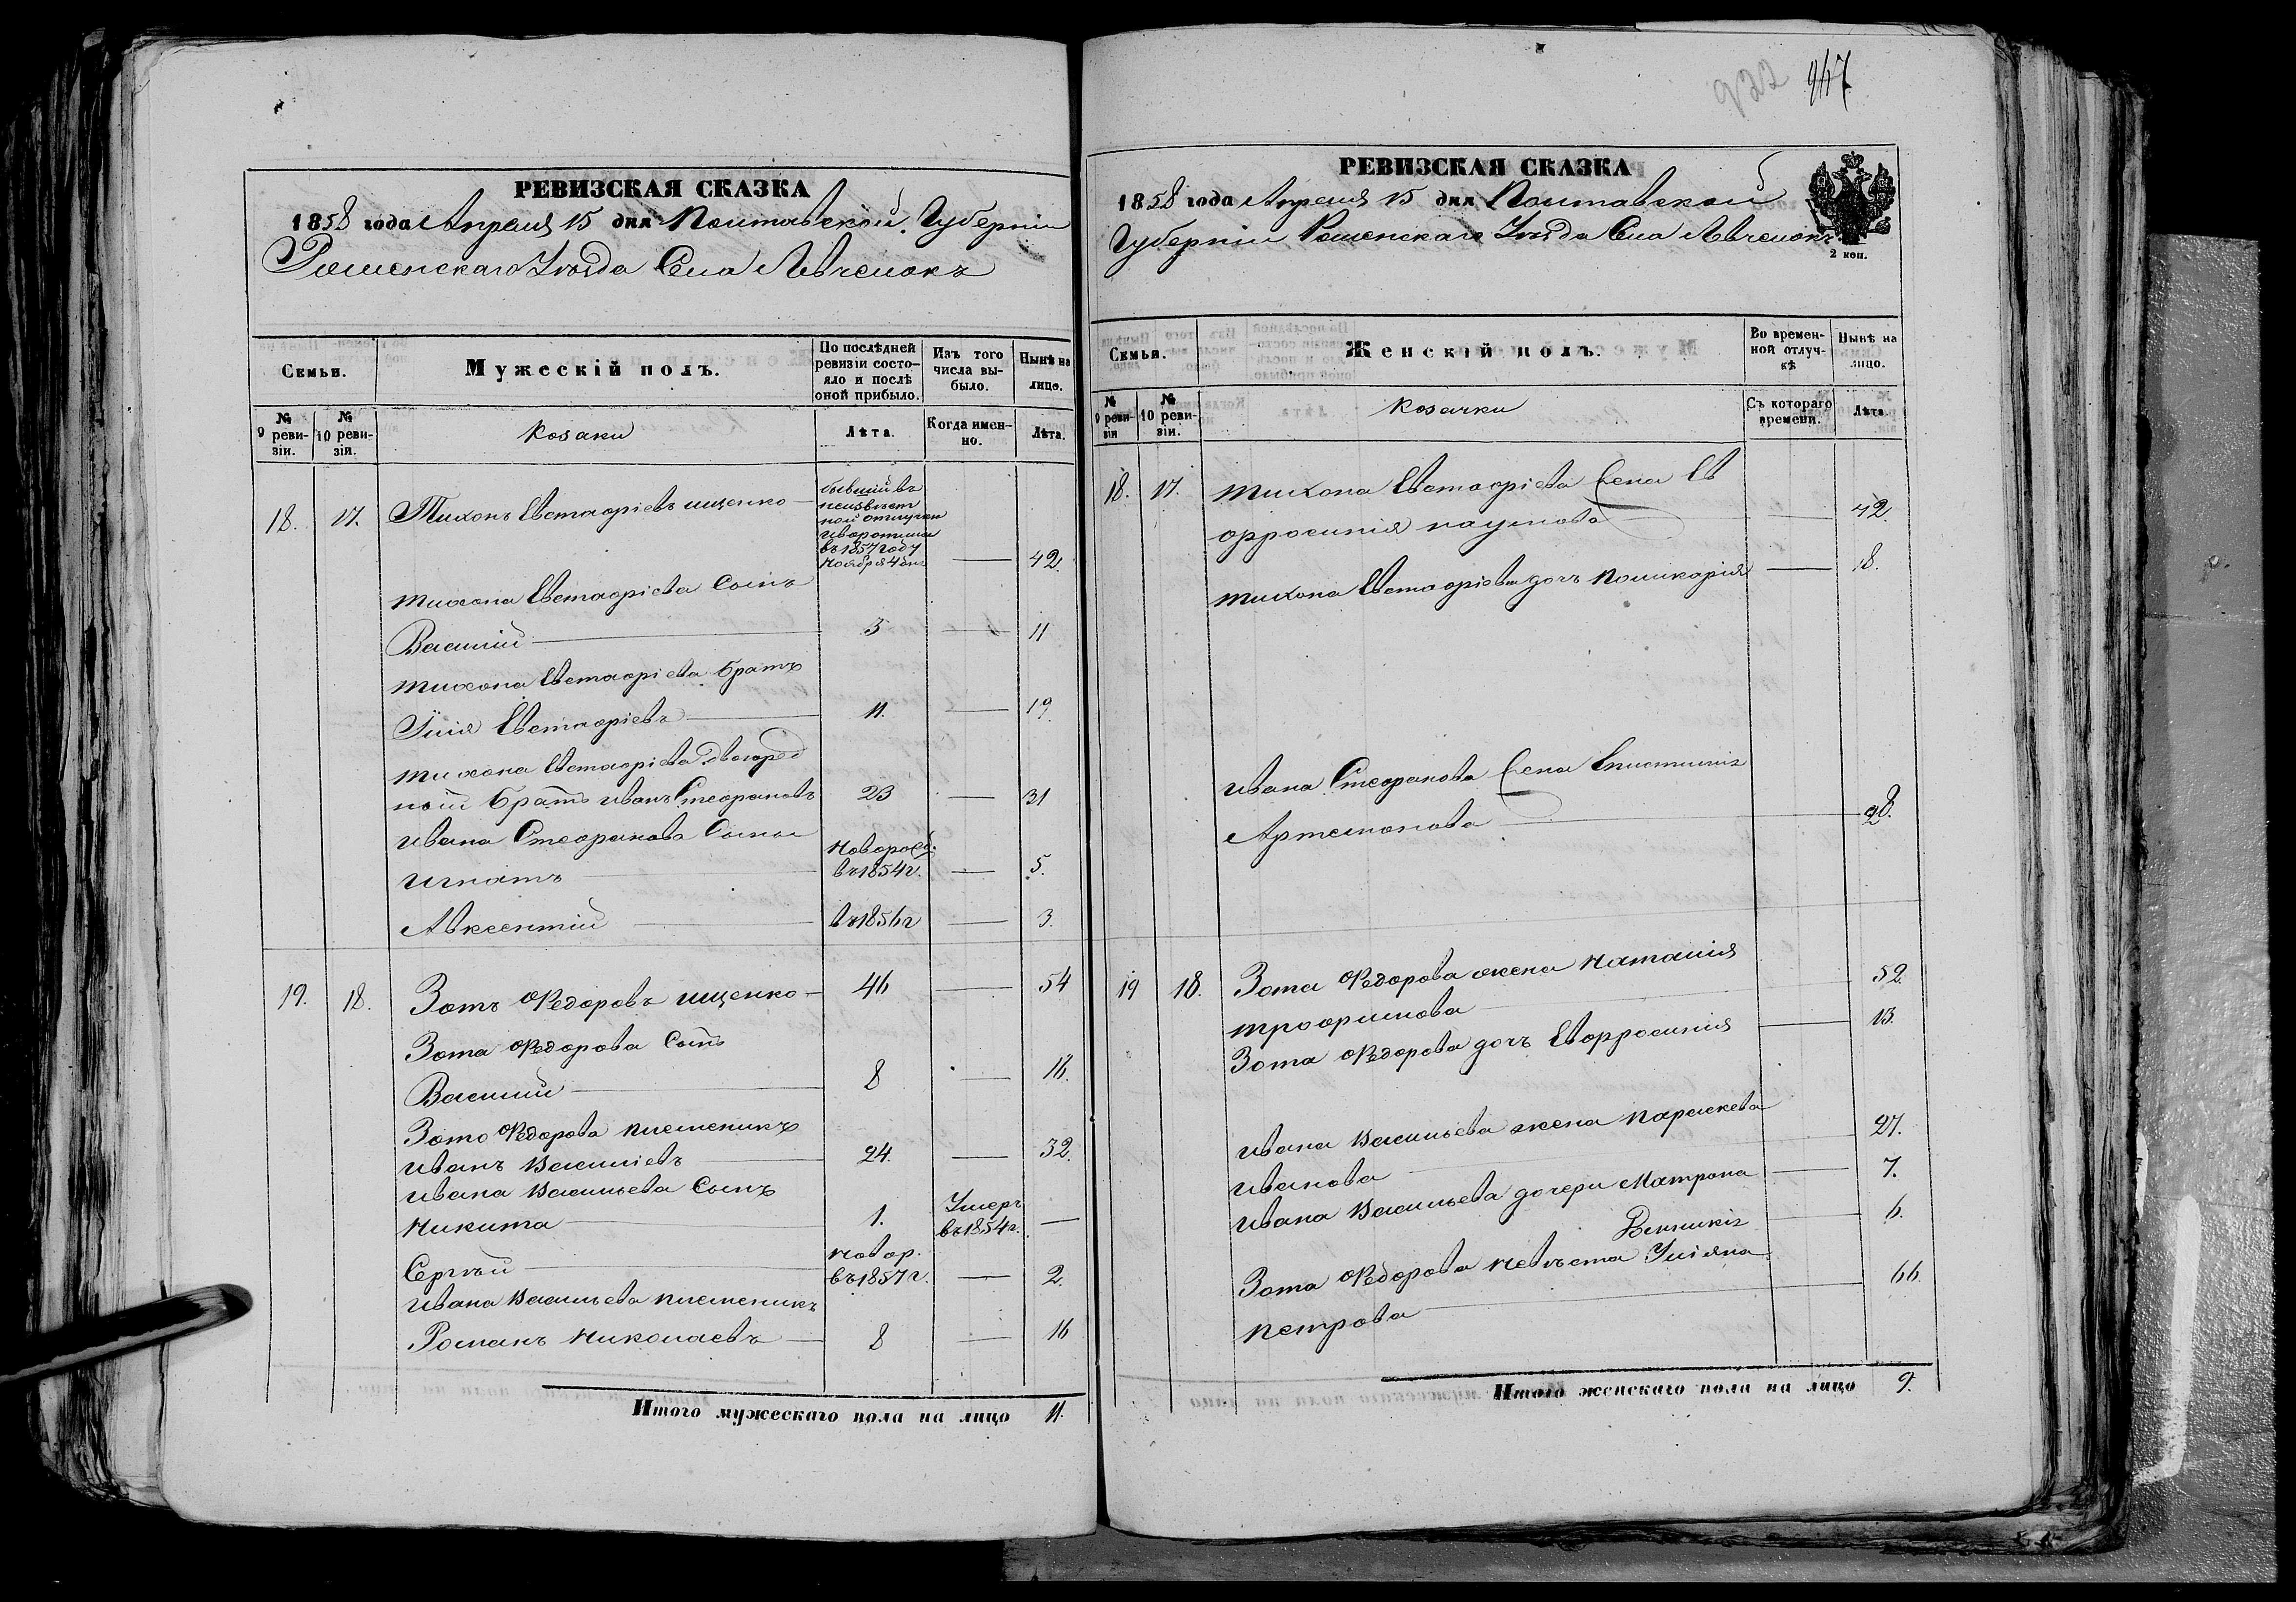 922 947
РЕВИЗСКАЯ СКАЗКА
1858 года Апреля 15 дня Полтавской Губерніи
Роменскаго Уѣзда Села Лвченокъ
Семьи.
Мужескій полъ.
По послѣдней ревизіи состояло и послѣ оной прибыло.
Изъ того числа выбыло.
Нынѣ на лицо.
№ 9 ревизіи.
№ 10 ревизіи.
Козаки
Лѣта.
Когда именно.
Лѣта.
бывшій въ
неизвѣст
ной отлучки
и воротился
въ 1857 году
Ноября 4 дня
18. 17. Тихонъ Евстафіевъ ищенко — 42.
тихона Евстафіева Сынъ
Василій — 3 — 11
тихона Евстафіева братъ
Илія Евстафіевъ — 11. — 19.
тихона Евстафіева двоюрод
ной братъ иванъ Стефановъ 23 — 31
ивана Стефанова Сыны
игнатъ — новорожд. въ 1854 г. — 5.
Авксентій — въ 1856 г — 3.
19. 18. Зотъ Федоровъ ищенко — 46 — 54
Зота Федорова Сынъ
Василий — 8 — 16.
Зота Федорова племеникъ
иванъ Василіевъ — 24. — 32.
ивана Васильева Сынъ
никита — 1. Умеръ въ 1854 г. —
Сергѣй — новор. въ 1857 г. — 2.
ивана Васильева племеникъ
Романъ николаевъ — 8 — 16
Итого мужескаго пола на лицо 11.
РЕВИЗСКАЯ СКАЗКА
1858 года Апреля 15 дня Полтавской
Губерніи Роменскаго Уѣзда Села Лвченокъ
2 коп.
Семьи.
Женскій полъ.
Во временной отлучкѣ
Нынѣ на лицо.
№ 9 ревизіи
№ 10 ревизіи.
Козачки
Съ котораго времени.
Лѣта.
18. 17. тихона Евстафіева жена Ев
фросинія наумова — 42.
тихона Евстафіева дочъ поликарія — 18.
ивана Стефанова жена
Артемонова — 28.
19 18. Зота Федорова жена наталия
трофимова — 52.
Зота Федорова дочъ Евфросиния — 13.
ивана Васильева жена параскева
иванова — 27.
ивана Васильева дочери Матрона — 7.
6.
Зота Федорова невѣста Уліяна
петрова — 66.
Итого женскаго пола на лицо 9.